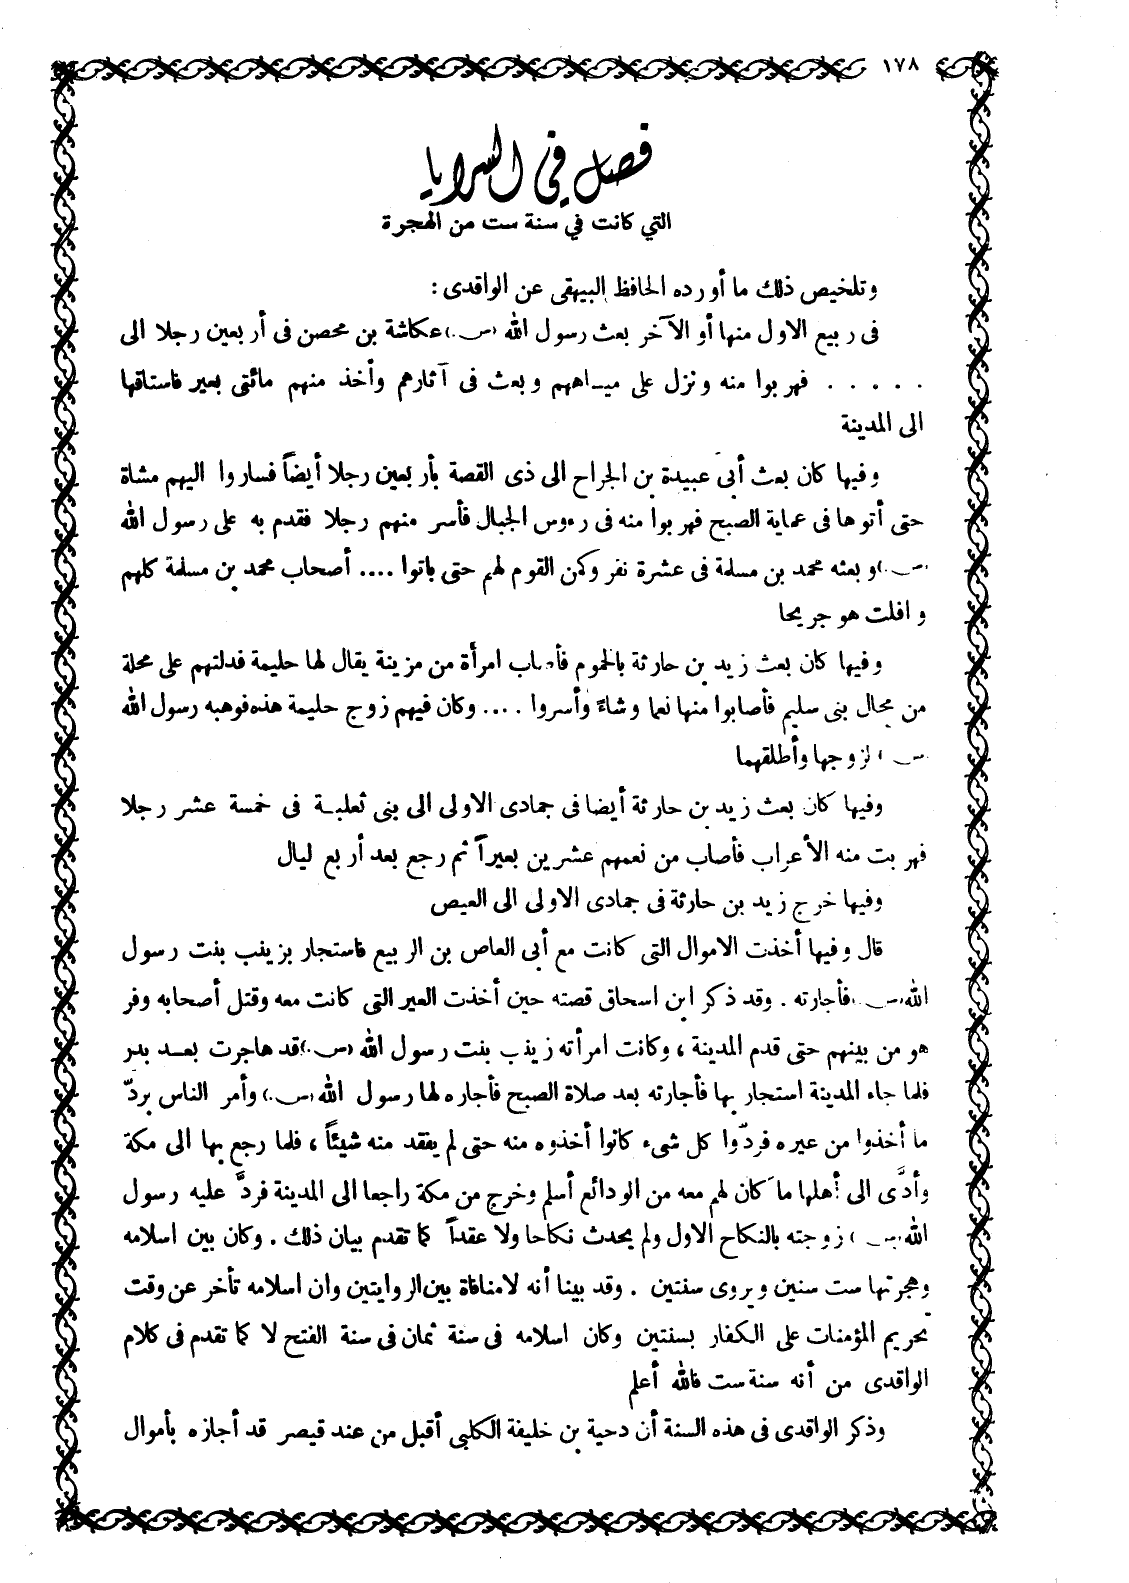 ١٧٨
فصل في السرايا
التي كانت في سنة ست من الهجرة
وتلخيص ذلك ما أورده الحافظ البيهقى عن الواقدى :
فى ربيع الاول منها أو الآخر بعث رسول الله (س.) عكاشة بن محصن فى أربعين رجلا الى
. . . . . فهربوا منه ونزل على مياههم وبعث فى آثارهم وأخذ منهم مائتى بعير فاستاقها
الى المدينة
وفيها كان بعث أبى عبيدة بن الجراح الى ذى القصة بأربعين رجلا أيضاً فساروا اليهم مشاة
حتى أتوها فى عماية الصبح فهربوا منه فى رءوس الجبال فأسر منهم رجلا فقدم به على رسول الله
(س.) وبعثه محمد بن مسلمة فى عشرة نفر وكمن القوم لهم حتى باتوا .... أصحاب محمد بن مسلمة كلهم
وافلت هو جريحا
وفيها كان بعث زيد بن حارثة بالحموم فأصاب امرأة من مزينة يقال لها حليمة فدلتهم على محلة
من محال بنى سليم فأصابوا منها نعما وشاءً وأسروا .... وكان فيهم زوج حليمة هذه فوهبه رسول الله
(س.) لزوجها وأطلقهما
وفيها كان بعث زيد بن حارثة أيضا فى جمادى الاولى الى بنى ثعلبة فى خمسة عشر رجلا
فهربت منه الأعراب فأصاب من نعمهم عشرين بعيراً ثم رجع بعد أربع ليال
وفيها خرج زيد بن حارثة فى جمادى الاولى الى العيص
قال وفيها أخذت الاموال التى كانت مع أبى العاص بن الربيع فاستجار بزينب بنت رسول
الله (س.) فأجارته . وقد ذكر ابن اسحاق قصته حين أخذت العير التى كانت معه وقتل أصحابه وفر
هو من بينهم حتى قدم المدينة ، وكانت امرأته زينب بنت رسول الله (س.) قد هاجرت بعد بدر
فلما جاء المدينة استجار بها فأجارته بعد صلاة الصبح فأجاره لها رسول الله (س.) وأمر الناس بردّ
ما أخذوا من عيره فردّوا كل شىء كانوا أخذوه منه حتى لم يفقد منه شيئاً ، فلما رجع بها الى مكة
وأدَّى الى أهلها ما كان لهم معه من الودائع أسلم وخرج من مكة راجعا الى المدينة فردَّ عليه رسول
الله (س.) زوجته بالنكاح الاول ولم يحدث نكاحا ولا عقداً كما تقدم بيان ذلك . وكان بين اسلامه
وهجرتها ست سنين ويروى سنتين . وقد بينا أنه لا منافاة بين الروايتين وان اسلامه تأخر عن وقت
تحريم المؤمنات على الكفار بسنتين وكان اسلامه فى سنة ثمان فى سنة الفتح لا كما تقدم فى كلام
الواقدى من أنه سنة ست فالله أعلم
وذكر الواقدى فى هذه السنة أن دحية بن خليفة الكلبى أقبل من عند قيصر قد أجازه بأموال